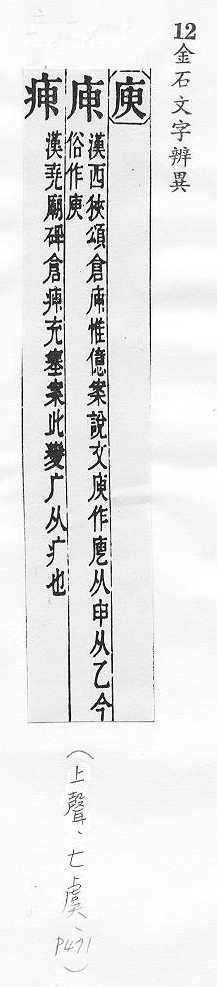 12金石文字辨異
庾
㢏 漢西狹頌倉庾惟億案說文庾作㢏从申从乙今
俗作庾
漢堯廟碑倉㾀充塞案此變广从疒也
(上聲、七虞、P471)